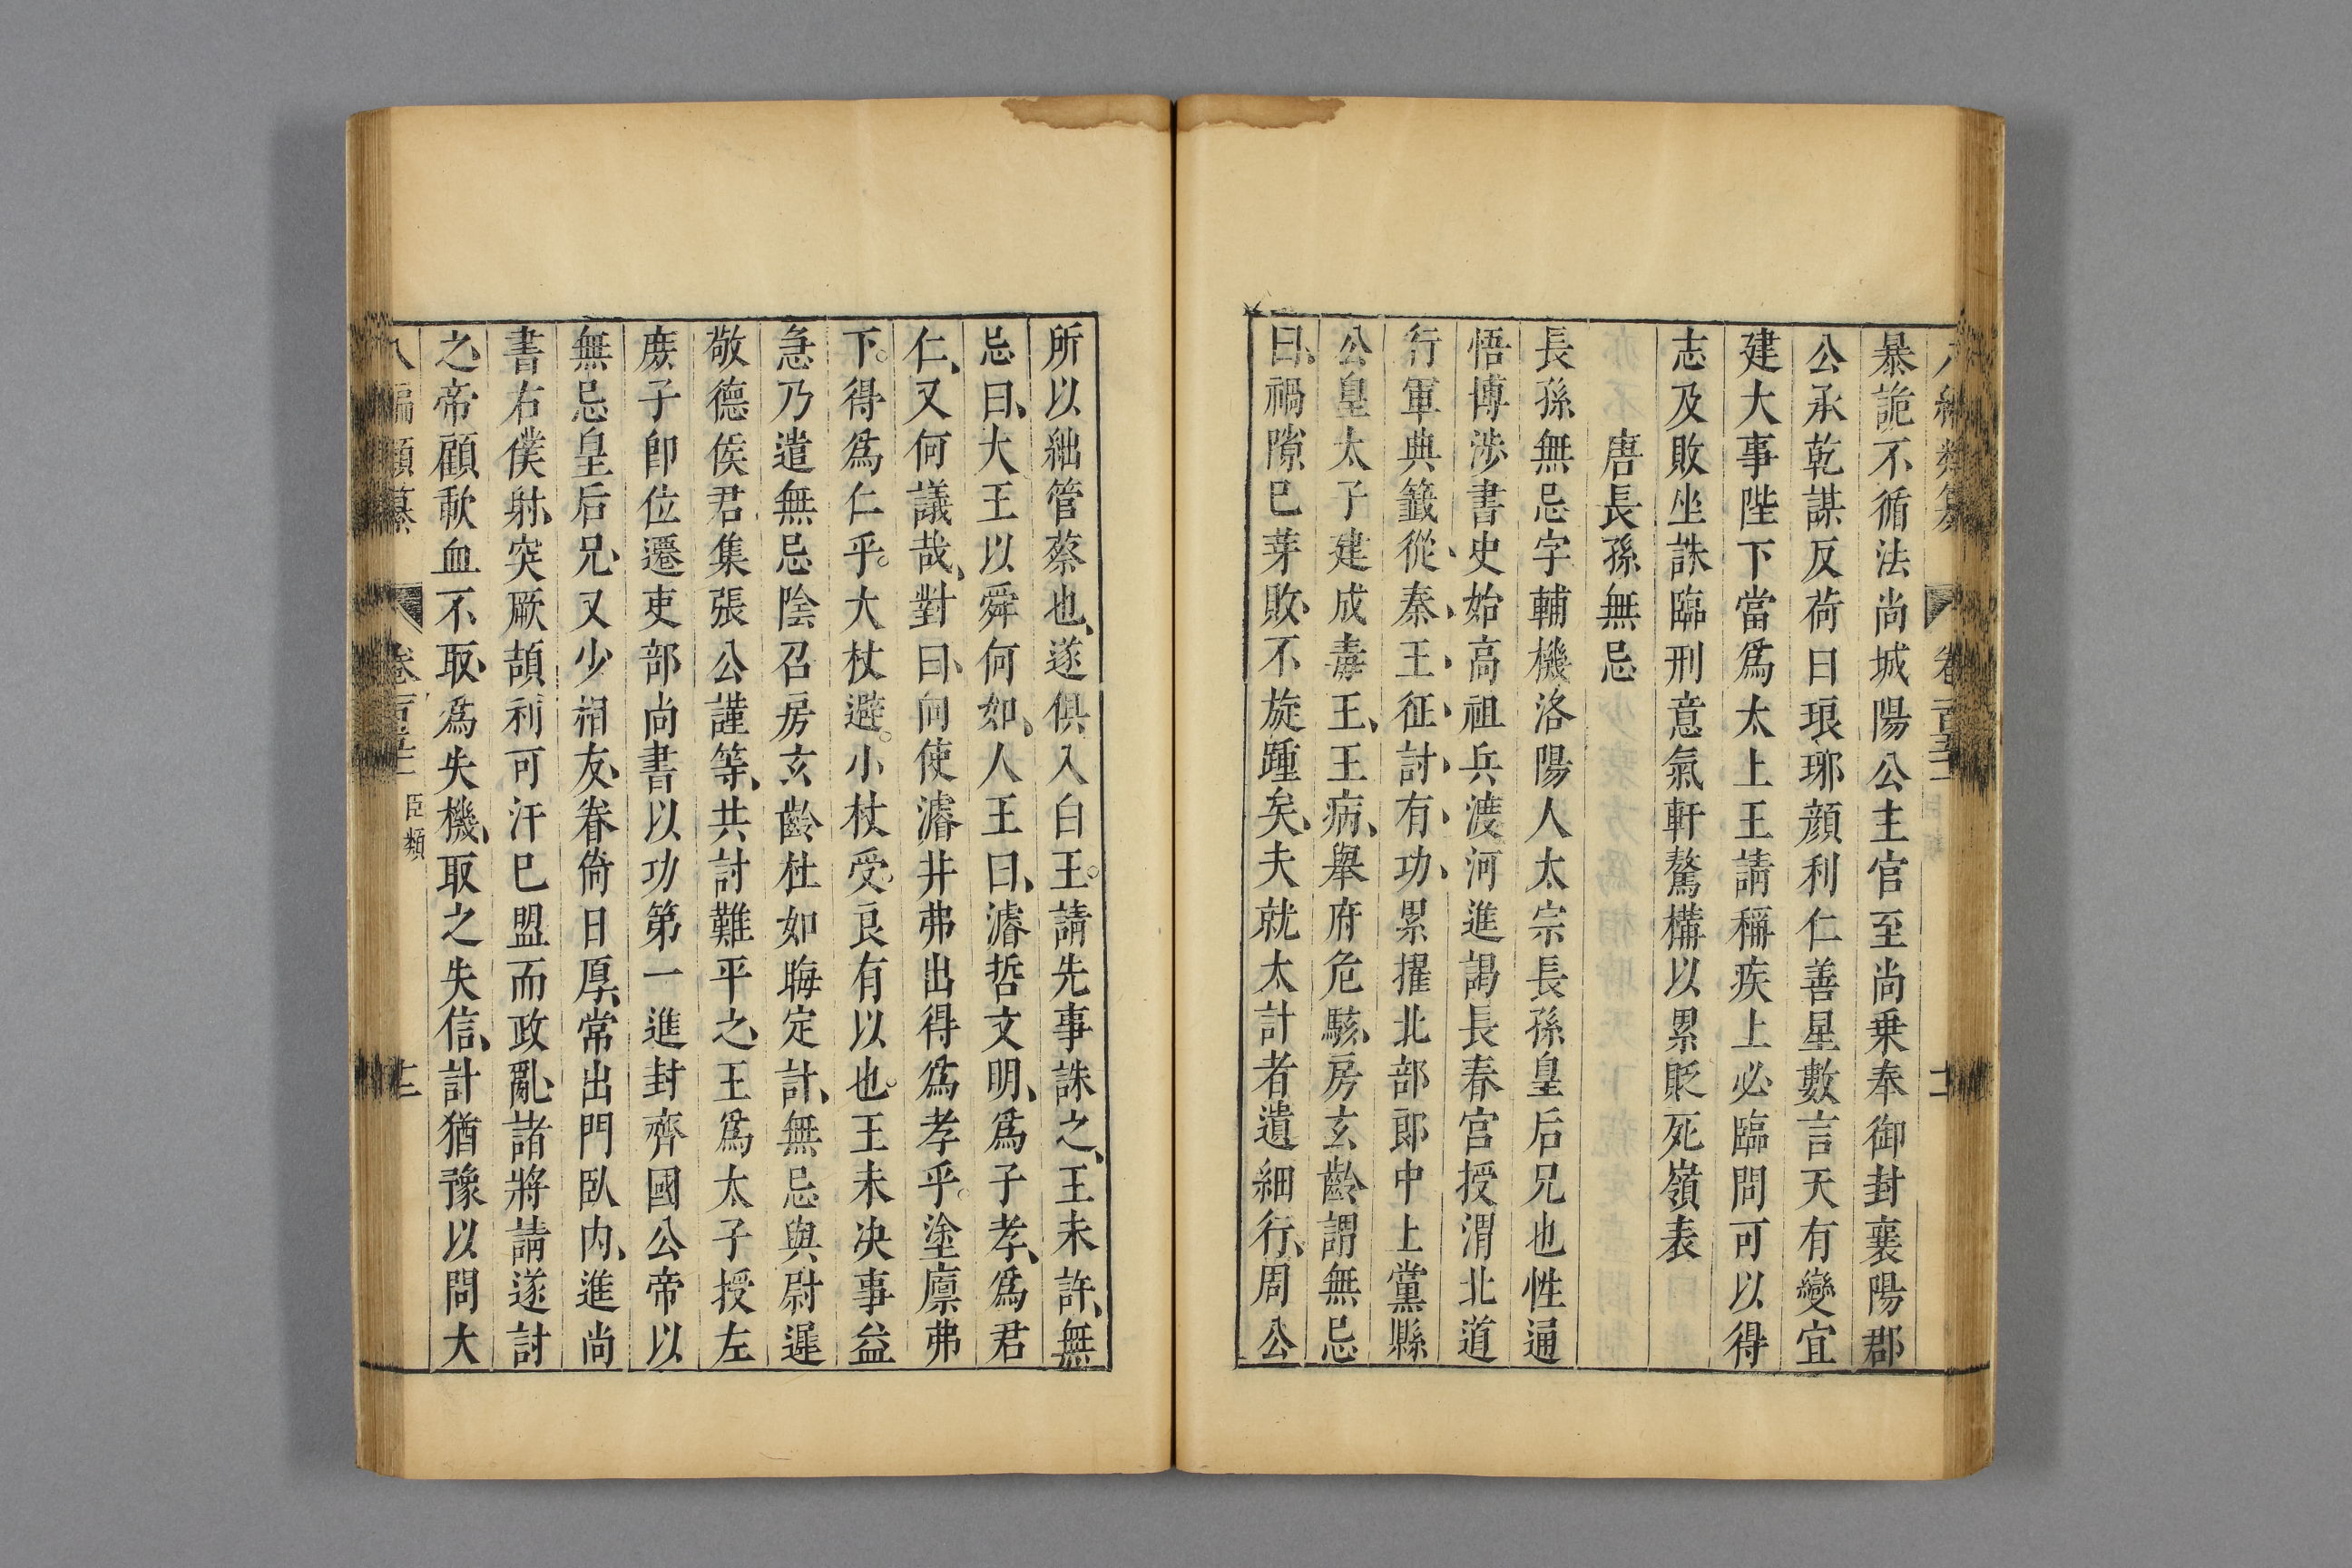 暴詭不循法尚城陽公主官至尚乗奉御封襄陽郡
公承乾謀反荷曰琅琊顔利仁善星數言天有變宜
建大事陛下當爲太上王請稱疾上必臨問可以得
志及敗坐誅臨刑意氣軒驁構以累貶死嶺表
唐長孫無忌
長孫無忌字輔機洛陽人太宗長孫皇后兄也性通
悟博涉書史始高祖兵渡河進謁長春宮授渭北道
行軍典籖從、秦、王、征、討、有、功、累擢北部郎中上黨縣
公皇太子建成毒王、王病、舉府危駭、房玄齡謂無忌
曰、禍隙巳芽敗、不旋踵矣、夫就大計者遺細行、周公
所以絀管蔡也、遂俱入白王。請先事誅之、王未許、無
忌曰、大王以舜何如、人王曰、濬哲文明、爲子孝、爲君
仁、又何議哉、對曰、向使濬井弗出得爲孝乎。塗廩弗
下。得爲仁乎。大杖避。小杖受。良有以也。王未决事益
急乃遣無忌陰召房玄齡杜如晦定計、無忌與尉遲
敬德侯君集張公謹等、共討難平之、王爲太子授左
庶子卽位遷吏部尚書以功第一進封齊國公帝以
無忌皇后兄、又少相友、眷倚日厚、常出門臥内、進尚
書右僕射、突厥頡利可汗巳盟而政亂、諸將請遂討
之、帝顧歃血不取、爲失機、取之失信、計猶豫以問大
八編類纂
臣類